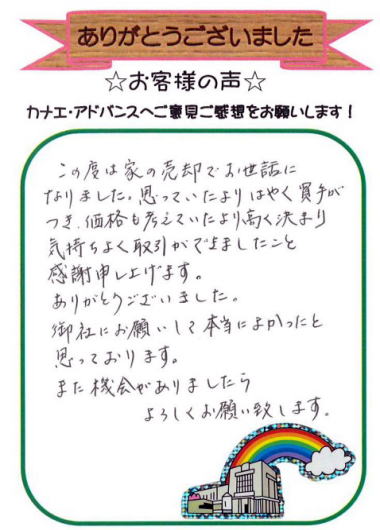 ありがとうございました
☆お客様の声☆
カナエ・アドバンスへご意見ご感想をお願いします！
この度は家の売却でお世話に
なりました。思っていたよりはやく買手が
つき、価格も考えていたより高く決まり
気持ちよく取引ができましたこと
感謝申し上げます。
ありがとうございました。
御社にお願いして本当によかったと
思っております。
また機会がありましたら
よろしくお願い致します。